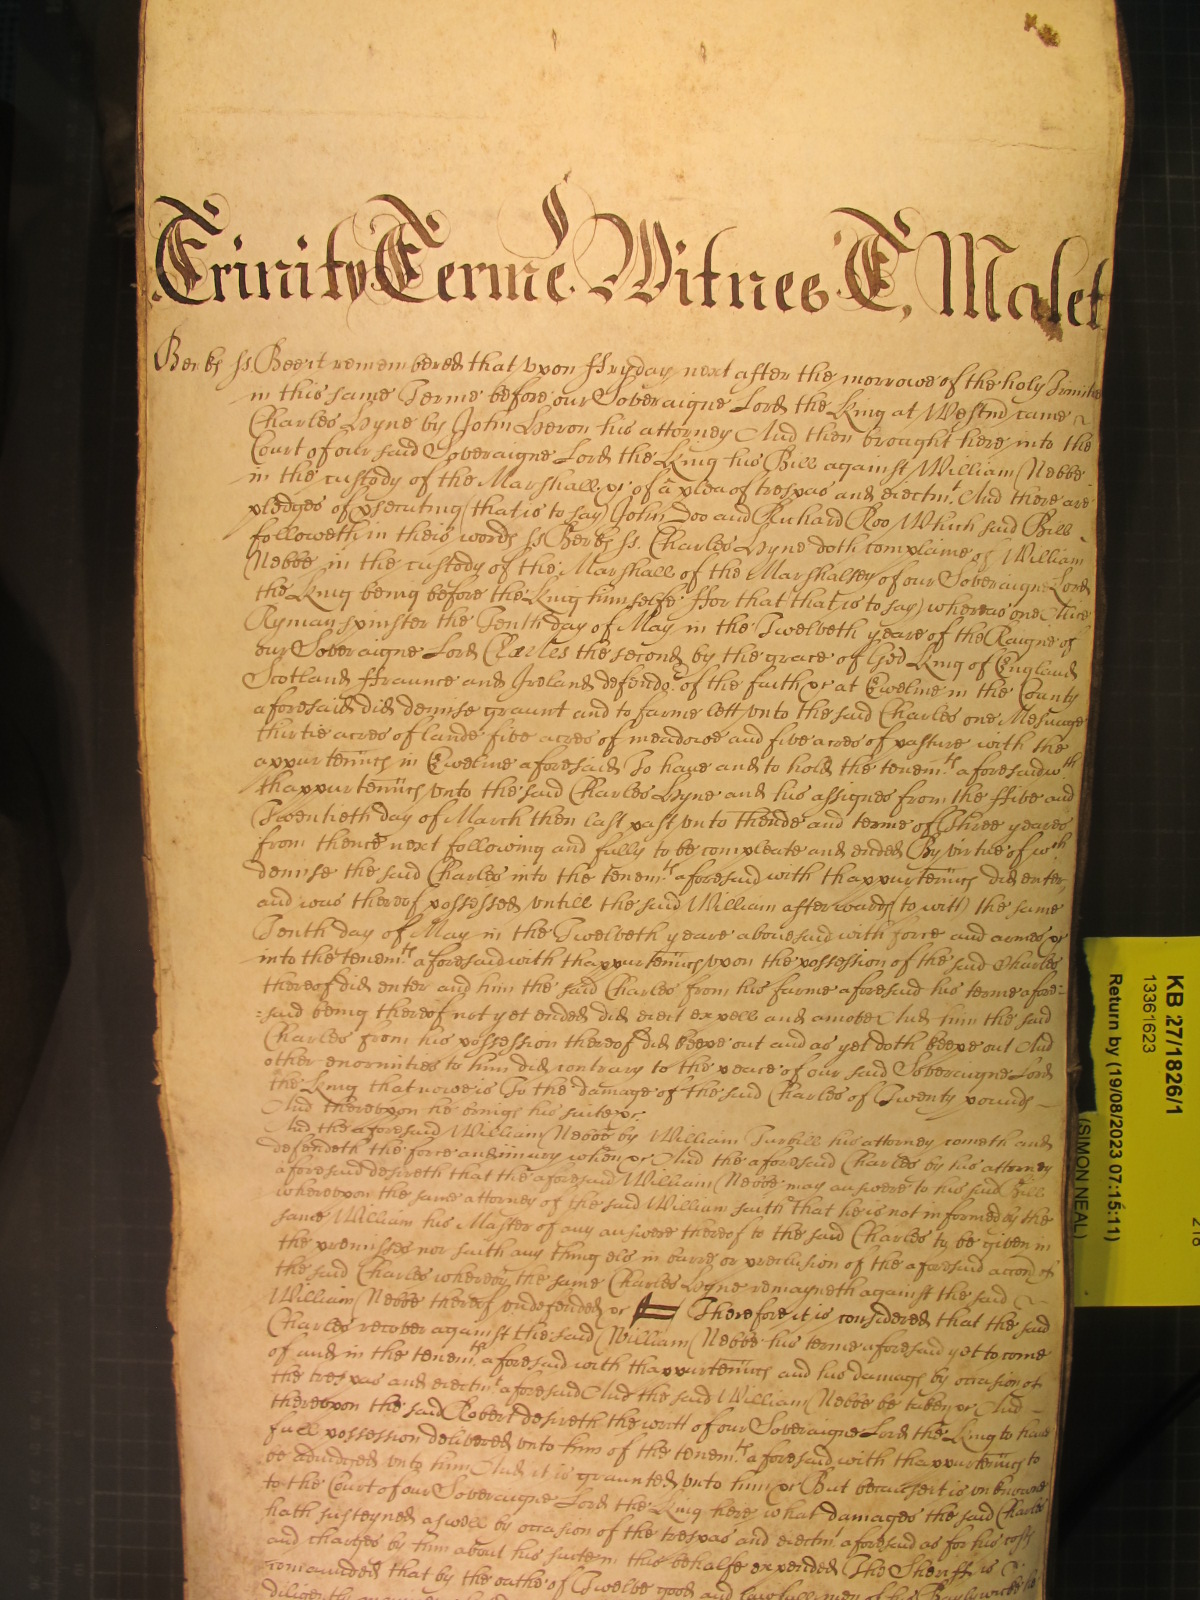 Trinity Terme Witnes T, Malet
Berks ss Bee it remembered that vpon ffryday next after the morrowe of the holy Trinitie
in this same Terme before our Soveraigne Lord the King at Westm̄ came
Charles Hyne by John Heron his attorney And then brought here into the
Court of our said Soveraigne Lord the King his Bill against William
in the custody of the Marshall &c of a plea of trespas and eiectmt. And there are
pledges of psecuting (that is to say) John Doo and Richard Roo Which said Bill
followeth in theis words ss Berks ss. Charles Hyne doth complaine of William
in the custody of the Marshall of the Marshalsey of our Soveraigne Lord
the King being before the King himselfe ffor that (that is to say) whereas one Alice
Ryman spinster the Tenth day of May in the Twelveth yeare of the Raigne of
our Soveraigne Lord Charles the second by the grace of God King of England
Scotland ffraunce and Ireland defendor of the faith &c at Eweline in the County
aforesaid did demise graunt and to farme lett vnto the said Charles one Mesuage
thirtie acres of lande five acres of meadowe and five acres of pasture with the
appurtenn̄cs in Eweline aforesaid To have and to hold the tenemts. aforesaid wth
thappurtenn̄cs vnto the said Charles Hyne and his assignes from the ffive and
Twentieth day of March then last past vnto thende and terme of Three yeares
from thence next following and fully to be compleate and ended By virtue of wch
demise the said Charles into the tenemts. aforesaid with thappurtenn̄cs did enter
and was thereof possessed vntill the said William afterwards (to witt) the same
Tenth day of May in the Twelveth yeare abovesaid with force and armes &c
into the tenemts. aforesaid with thappurtenn̄cs vpon the possession of the said Charles
thereof did enter and him the said Charles from his farme aforesaid his terme afore=
=said being thereof not yet ended did eiect expell and amove And him the said
Charles from his possession thereof did keepe out and as yet doth keepe out And
other enormities to him did contrary to the peace of our said Soveraigne Lord
the King that nowe is To the damage of the said Charles of Twenty pounds
And therevpon he brings his suite &c.
And the aforesaid William by William his attorney cometh and
defendeth the force and iniury when &c And the aforesaid Charles by his attorney
aforesaid desireth that the aforesaid William may answere to his said Bill
wherevpon the same attorney of the said William saith that he is not informed by the
same William his Master of any answere thereof to the said Charles to be given in
the premisses nor saith any thing els in barre or preclusion of the aforesaid accon̄ of
the said Charles whereby the same Charles Hyne remayneth against the said
William thereof vndefended &c Therefore it is considered that the said
Charles recover against the said William his terme aforesaid yet to come
of and in the tenemts. aforesaid with thappurtenn̄cs and his damages by occasion of
the trespas and eiectmt. aforesaid And the said William be taken &c And
therevpon the said Robert desireth the writt of our Soveraigne Lord the King to have
full possession delivered vnto him of the tenemts. aforesaid with thappurtenn̄cs to
be adiudged vnto him And it is graunted vnto him &c But because it is vnknowne
to the Court of our Soveraigne Lord the King here what damages the said Charles
hath susteyned aswell by occasion of the trespas and eiectmt aforesaid as for his costs
and charges by him about his suite in this behalfe expended The Sheriff is
comaunded that by the oathe of Twelve good and lawfull men of his Baylywicke he
diligently
KB 27/1826/1
13361623
Return by (19/08/2023 07:15:11)
(SIMON NEAL)